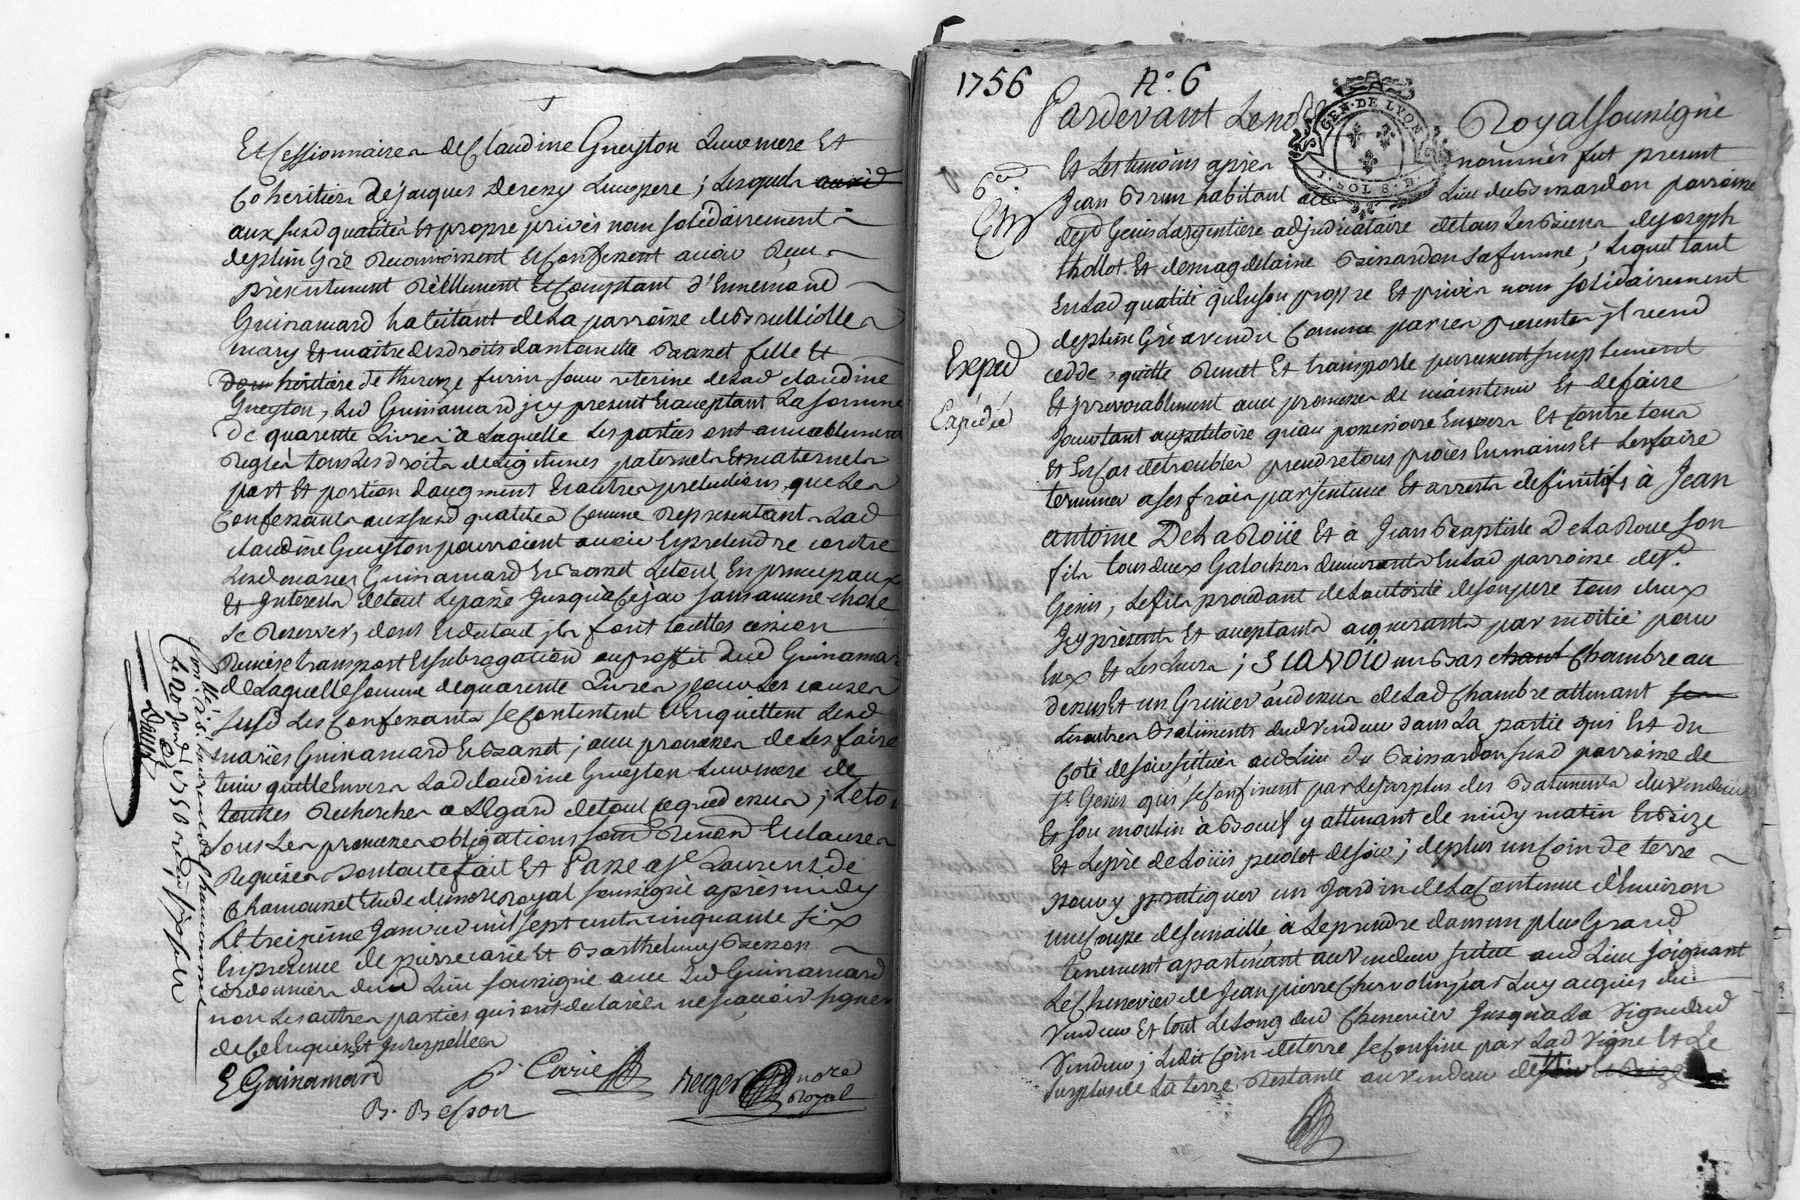 Et Cessionnaire de Claudine Gueyton Leur mere Et
Coheritiers de jacques Derenzy Leur pere ; Lesquels
aux susd qualités Et propre privés nom solidairement
de plein Gré Reconnoissent Et Confessent avoir Reçu
présentement Réellement Et Comptant d'Ennemond
Guinamard habitant de La parroisse de Brullioles
mary Et maitre des droits d'antoinette fille Et
héritière de furin sœur uterine de Lad Claudine
Gueyton, Led Guinamard jcy present Et acceptant La somme
De quarente Livres a Laquelle Les parties ont amicablement
Reglés tous Les droits de Legitimes paternels Et maternels
part Et portion daugment Et autres pretentions que Les
Confessants aux susd qualités Comme Representants Lad
Claudine Gueyton pourroient avoir Et pretendre contre
Lesd mariés Guinamard Et Le tout En principaux
Et Interets de tout Le passé Jusqua Ce jour sans aucune chose
se Reserver, dont Et du tout jls font toutes cession
Remise transport Et subrogation au proffit dud Guinamard
de Laquelle somme de quarente Livres pour Les causes
susd Les Confessants se Contentent Et en quittent Lesd
mariés Guinamard Et ; avec promesse de Les faire
tenir quitte Envers Lad Claudine Gueyton Leur mere de
toutes Recherches a L'Egard de tout ce que dessus ; Le tout
sous Les promesses obligations Et clauses
Requises fait Et Passé a st Laurent de
Chamousset Etude du nore royal soussigné après midy
Le treizième Janvier mil sept cents cinquante six
En presence de pierre Et Barthelemy Besson
cordonniers dud Lieu soussigné avec Led Guinamard
non Les autres parties qui ont declarées ne sçavoir signer
de Ce Enquises Et Interpellées
E Guinamard
B. Besson
nore
Royal
1756 N° 6
GEN · DE LYON
1 · SOL 8 · D
Pardevant Le no Royal soussigné
Et Les temoins après nommés fut present
Jean Brun habitant au Lieu du parroisse
de st Genis Largentiere adjudicataire de tous Les Biens de Joseph
thollot Et de magdelaine sa femme ; Lequel tant
En Lad qualité qu'En son propre Et privés nom solidairement
de plein Gré a vendu Comme par ces presentes jl vend
cedde quitte Remet Et transporte purement simplement
Et jrrevocablement avec promesse de maintenir Et de faire
Jouir tant au petitoire qu'au possessoire Envers Et Contre tous
Et En Cas de troubles prendre tous procès En mains Et Les faire
terminer a ses frais par sentence Et arrests definitifs, à Jean
antoine De La Roüe Et à Jean Baptiste De La Roüe son
fils tous deux Galochers demeurants En Lad parroisse de st
Genis ; Le fils procedant de L'autorité de son pere tous deux
Jcy présents Et acceptants acquerants par moitié pour
Eux Et Les Leurs ; SCAVOIR un Bas Chambre au
dessus Et un Grenier au dessus de Lad Chambre attenant
Les autres Batiments dud vendeur dans La partie qui Est du
Coté de soir situés aud Lieu du susd parroisse de
st Genis qui se Confinent par Le surplus des Batiments du vendeur
Et son moulin à y attenant de midy matin Et Bize
Et Le pré de de soir ; de plus un Coin de terre
pour y pratiquer un Jardin de La Contenue d'Environ
une Coupe de semaille à Le prendre dans un plus Grand
tenement apartenant au vendeur situé aud Lieu Joignant
Le Chenevier de Jean pierre par Luy acquis du
vendeur Et tout Le Long dud Chenevier Jusqu'a La vigne dud
vendeur ; Ledit Coin de terre se Confine par Lad vigne Et Le
surplus de La terre Restante au vendeur
Exped
Expédié